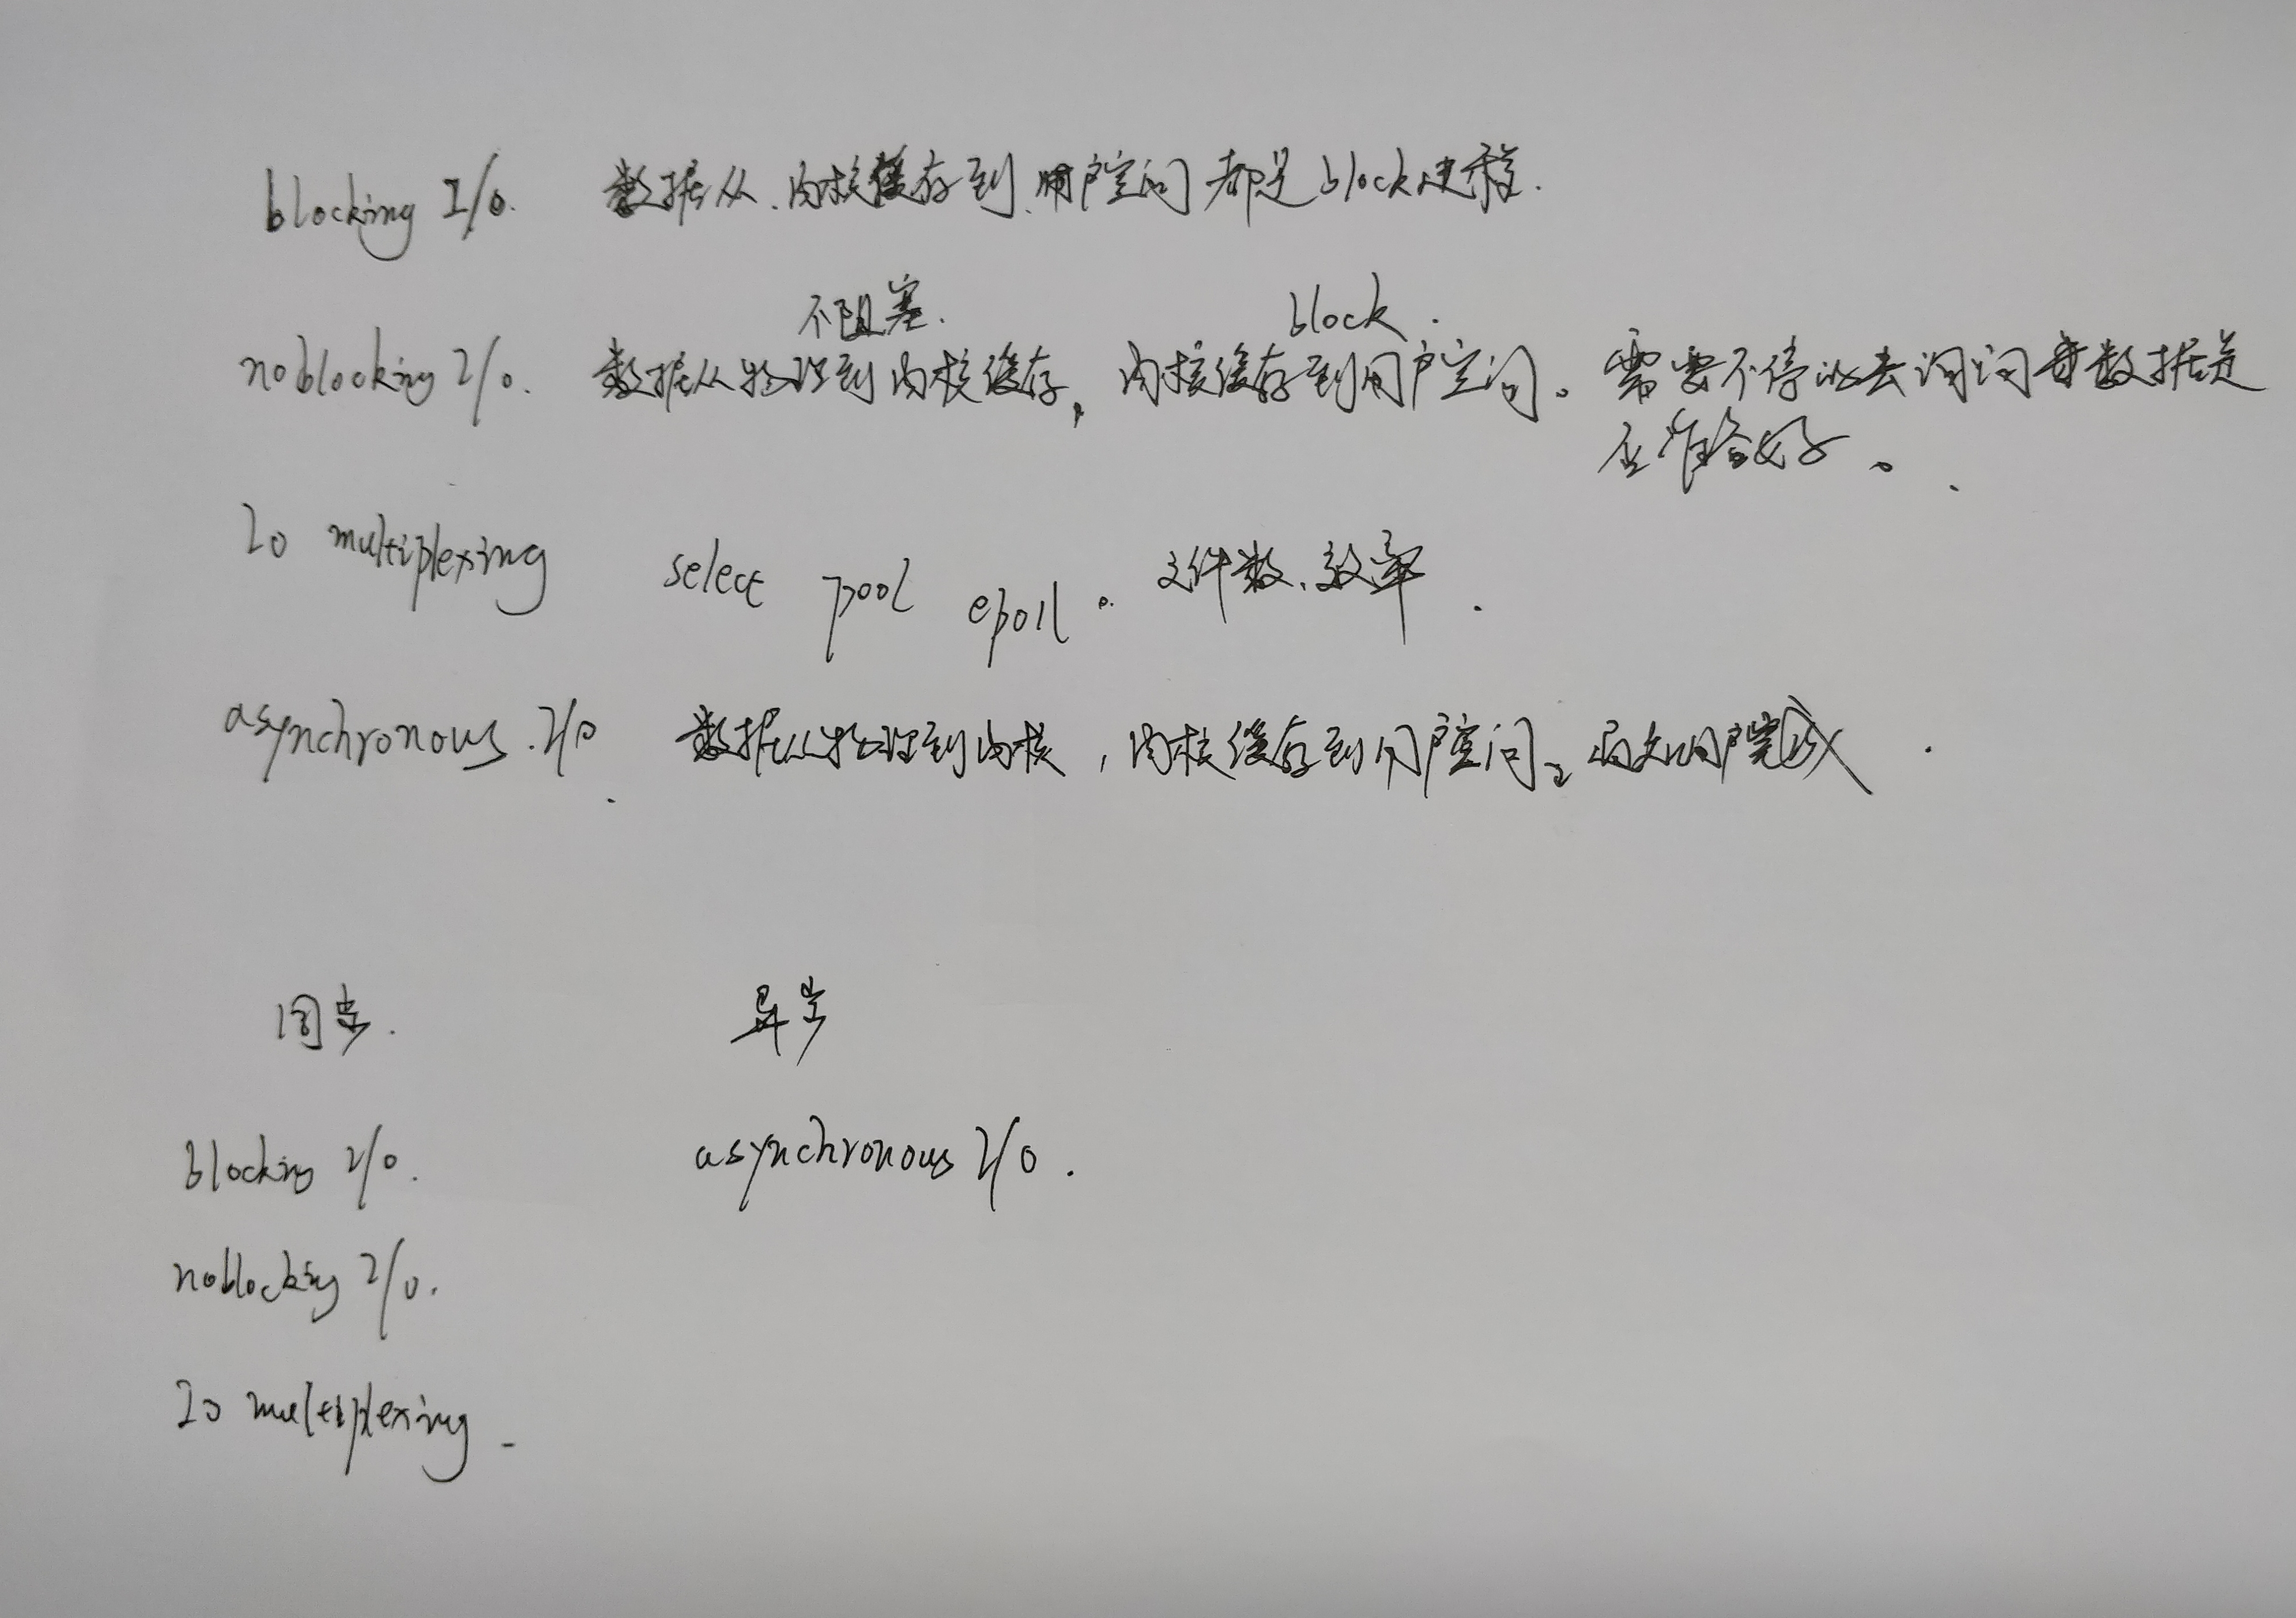 blocking I/O. 数据从.内核缓存到.用户空间都是block进程.
不阻塞. block.
noblocking I/O. 数据从物理到内核缓存, 内核缓存到用户空间。需要不停的去询问数据是
否准备好。
IO multiplexing select pool epoll。文件数、效率.
asynchronous.I/O 数据从物理到内核,内核缓存到用户空间。用户完成.
同步. 异步
blocking I/O. asynchronous I/O.
noblocking I/O.
IO multiplexing